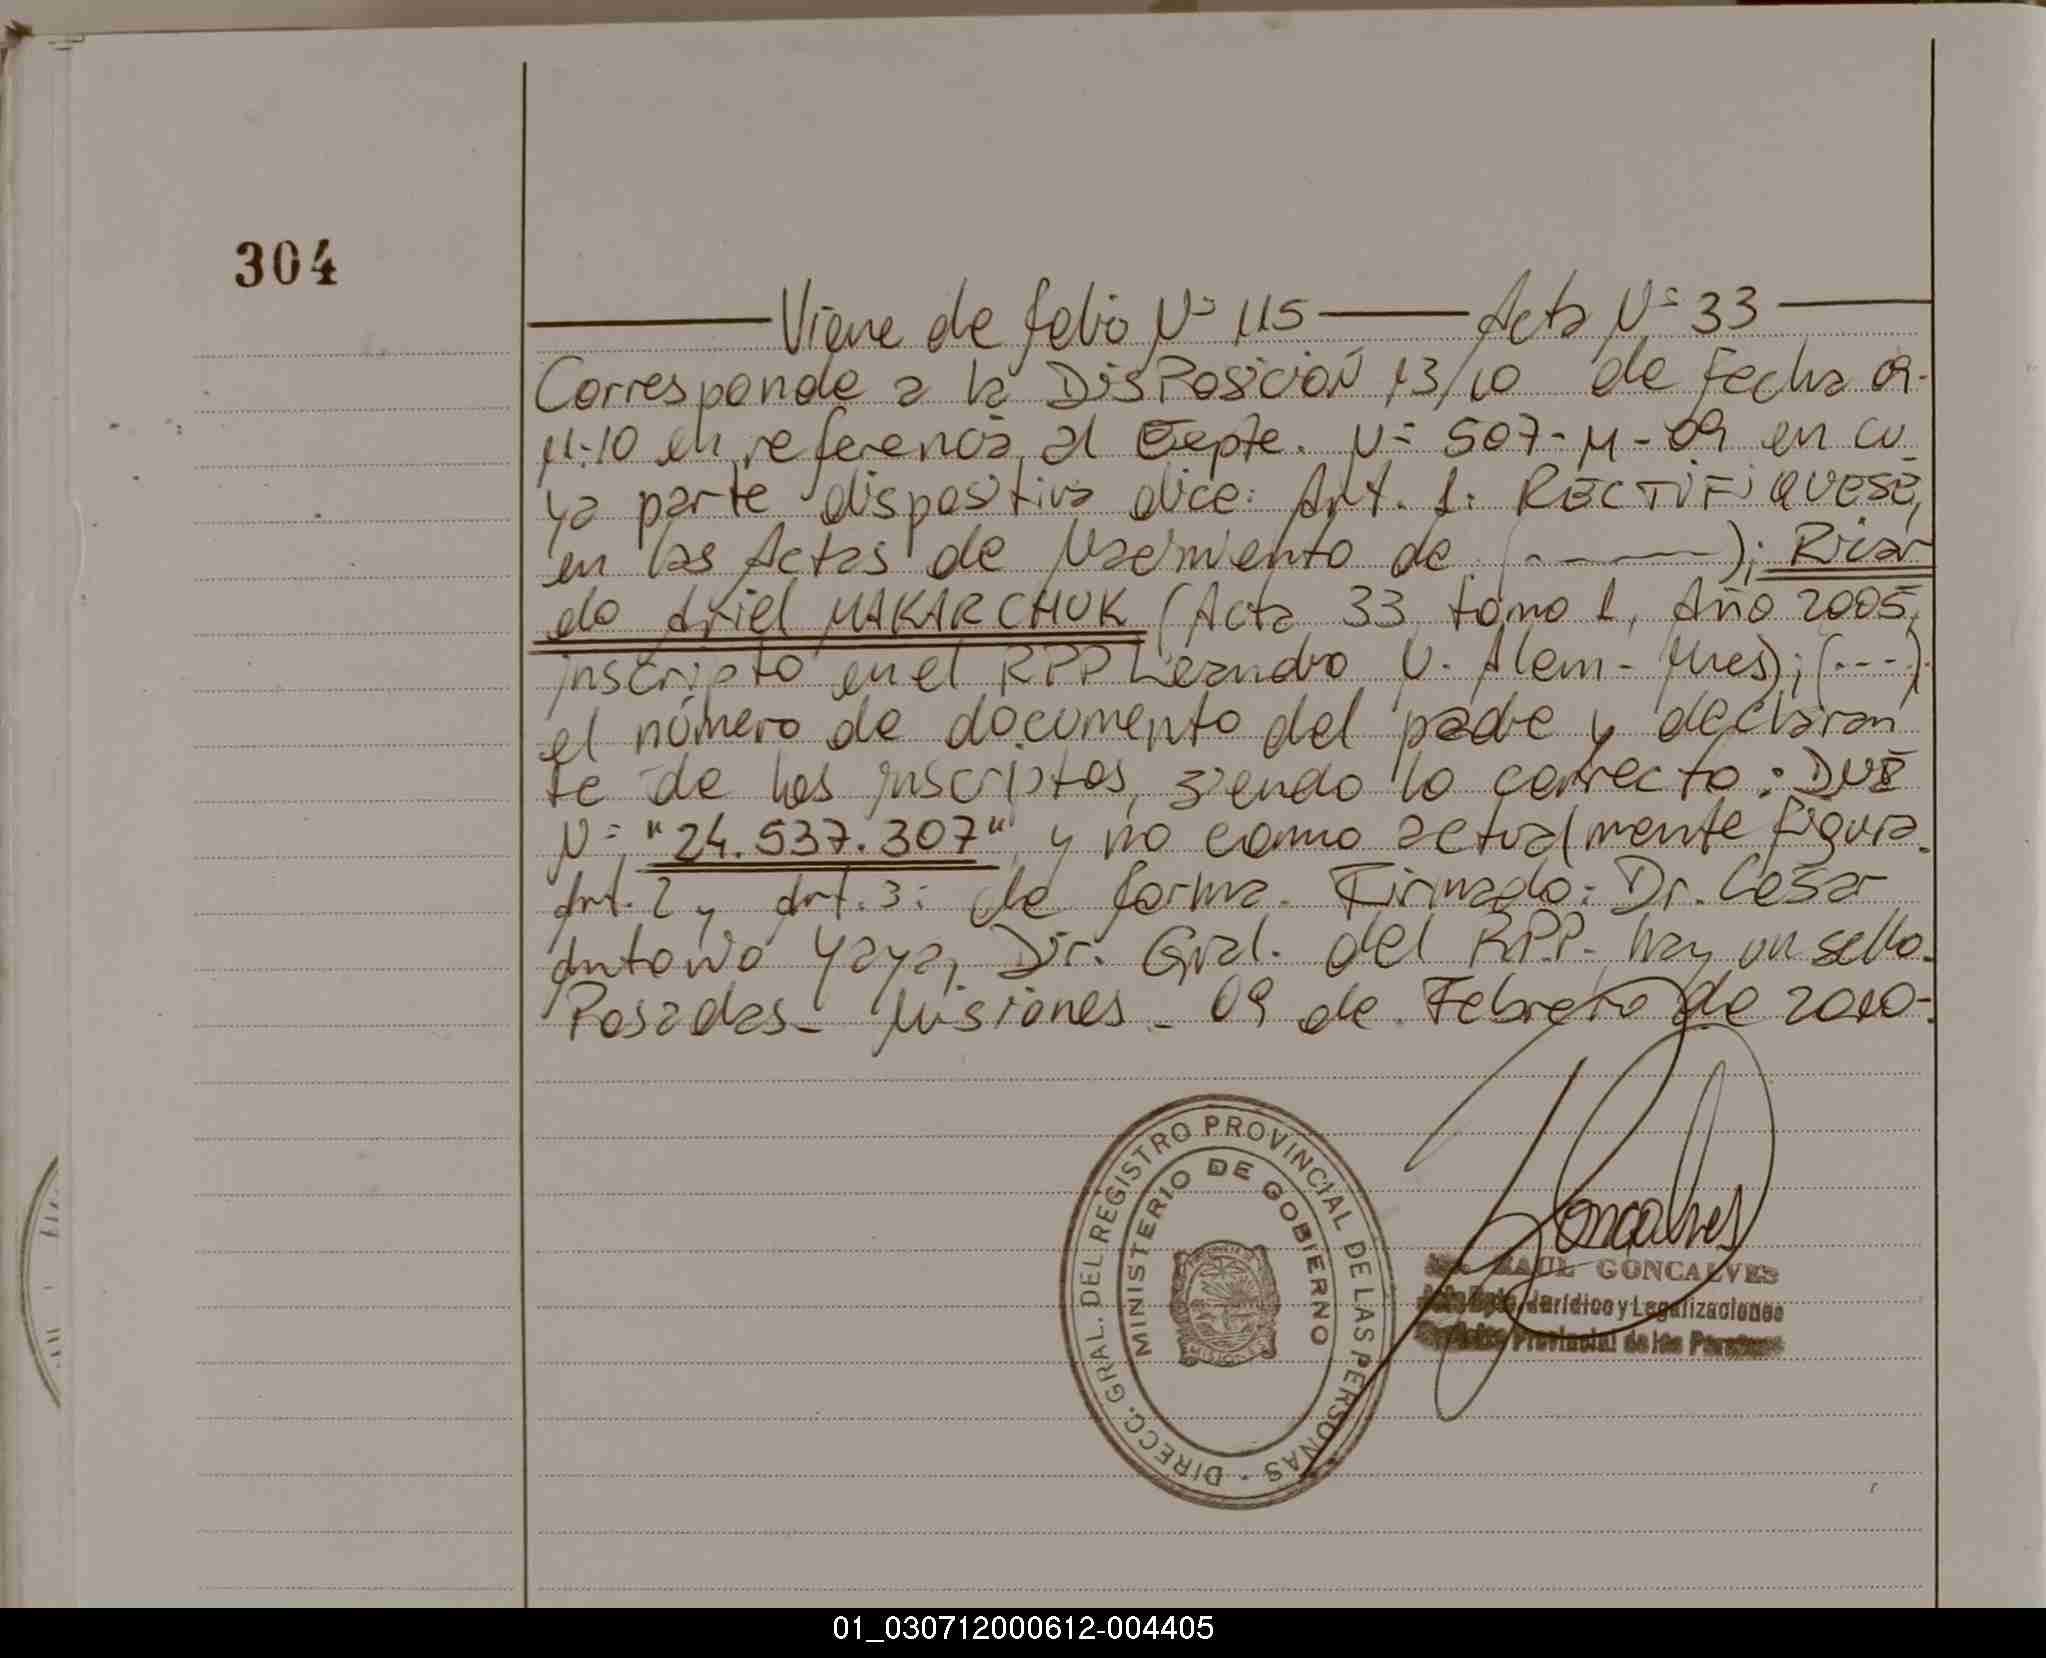 304
Viene de folio Nº 115 — Acta Nº 33
Corresponde a la DISPOSICIÓN 13/10 de Fecha 09-
11-10 en referencia al Expte. Nº 507-M-09 en cu
ya parte dispositiva dice: Art. 1: RECTIFIQUESE,
en las Actas de Nacimiento de (- ———); Ricar
do Ariel MAKARCHUK (Acta 33, tomo 1, Año 2005,
inscripto en el RPP Leandro N. Alem - Mnes); (----).
el número de documento del padre y declaran
te de los inscriptos, siendo lo correcto: DNI
Nº "24.537.307" y no como actualmente figura.
Art. 2 y Art. 3: de forma. Firmado: Dr. Cesar
Antonio Yaya, Dir. Gral. del RPP- hay un sello.
Posadas- Misiones - 09 de Febrero de 2010-.
DIRECC. GRAL. DEL REGISTRO PROVINCIAL DE LAS PERSONAS -
MINISTERIO DE GOBIERNO
MISIONES
Goncalves
RAUL GONCALVES
Jurídico y Legalizaciones
Provincial de las Personas
01_030712000612-004405